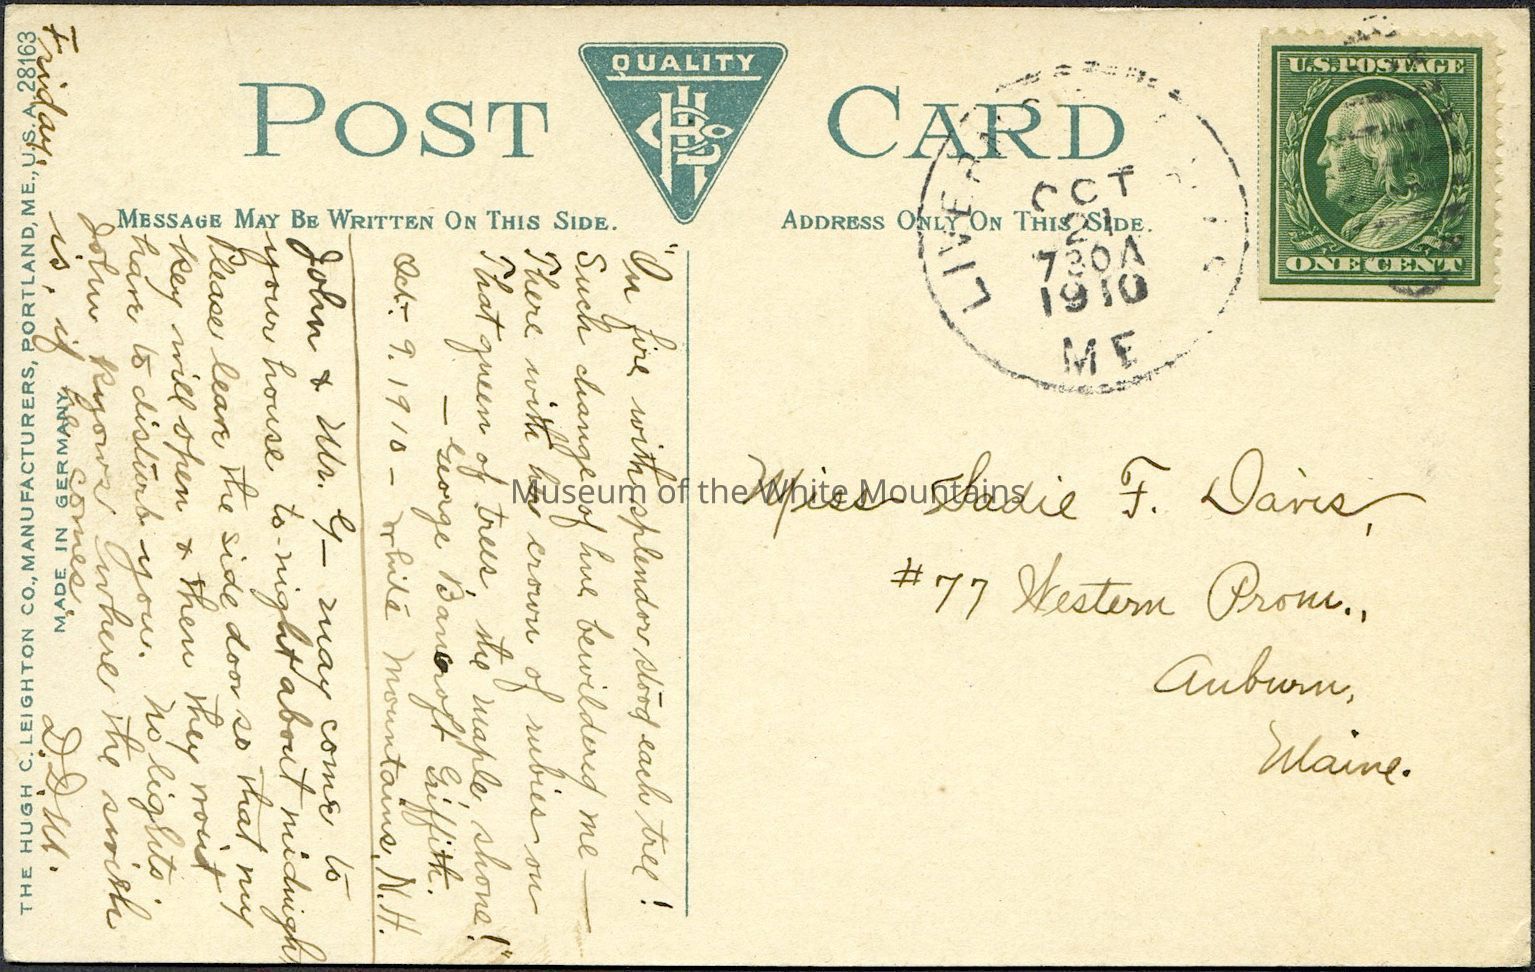 POST CARD
QUALITY
HCL Co
MESSAGE MAY BE WRITTEN ON THIS SIDE.
ADDRESS ONLY ON THIS SIDE.
LIVERM
OCT
21
730A
1910
ME
U.S. POSTAGE
ONE CENT
"On fire with splendor stood each tree!
Such change of hue bewildered me—
There with her crown of rubies on
That green of trees the maple shone!"
— George Bancroft Griffith.
Oct. 9. 1910 – White Mountains, N.H.
John & Mr. G— may come to
your house to-night about midnight
Please leave the side door so that my
key will open & then they won't
have to disturb you. No lights
John knows where the switch
is, if he comes.
Friday.
D.D.M.
Miss Sadie F. Davis,
#77 Western Prom.,
Auburn,
Maine.
THE HUGH C. LEIGHTON CO., MANUFACTURERS, PORTLAND, ME., U.S.A. 28163
MADE IN GERMANY
Museum of the White Mountains